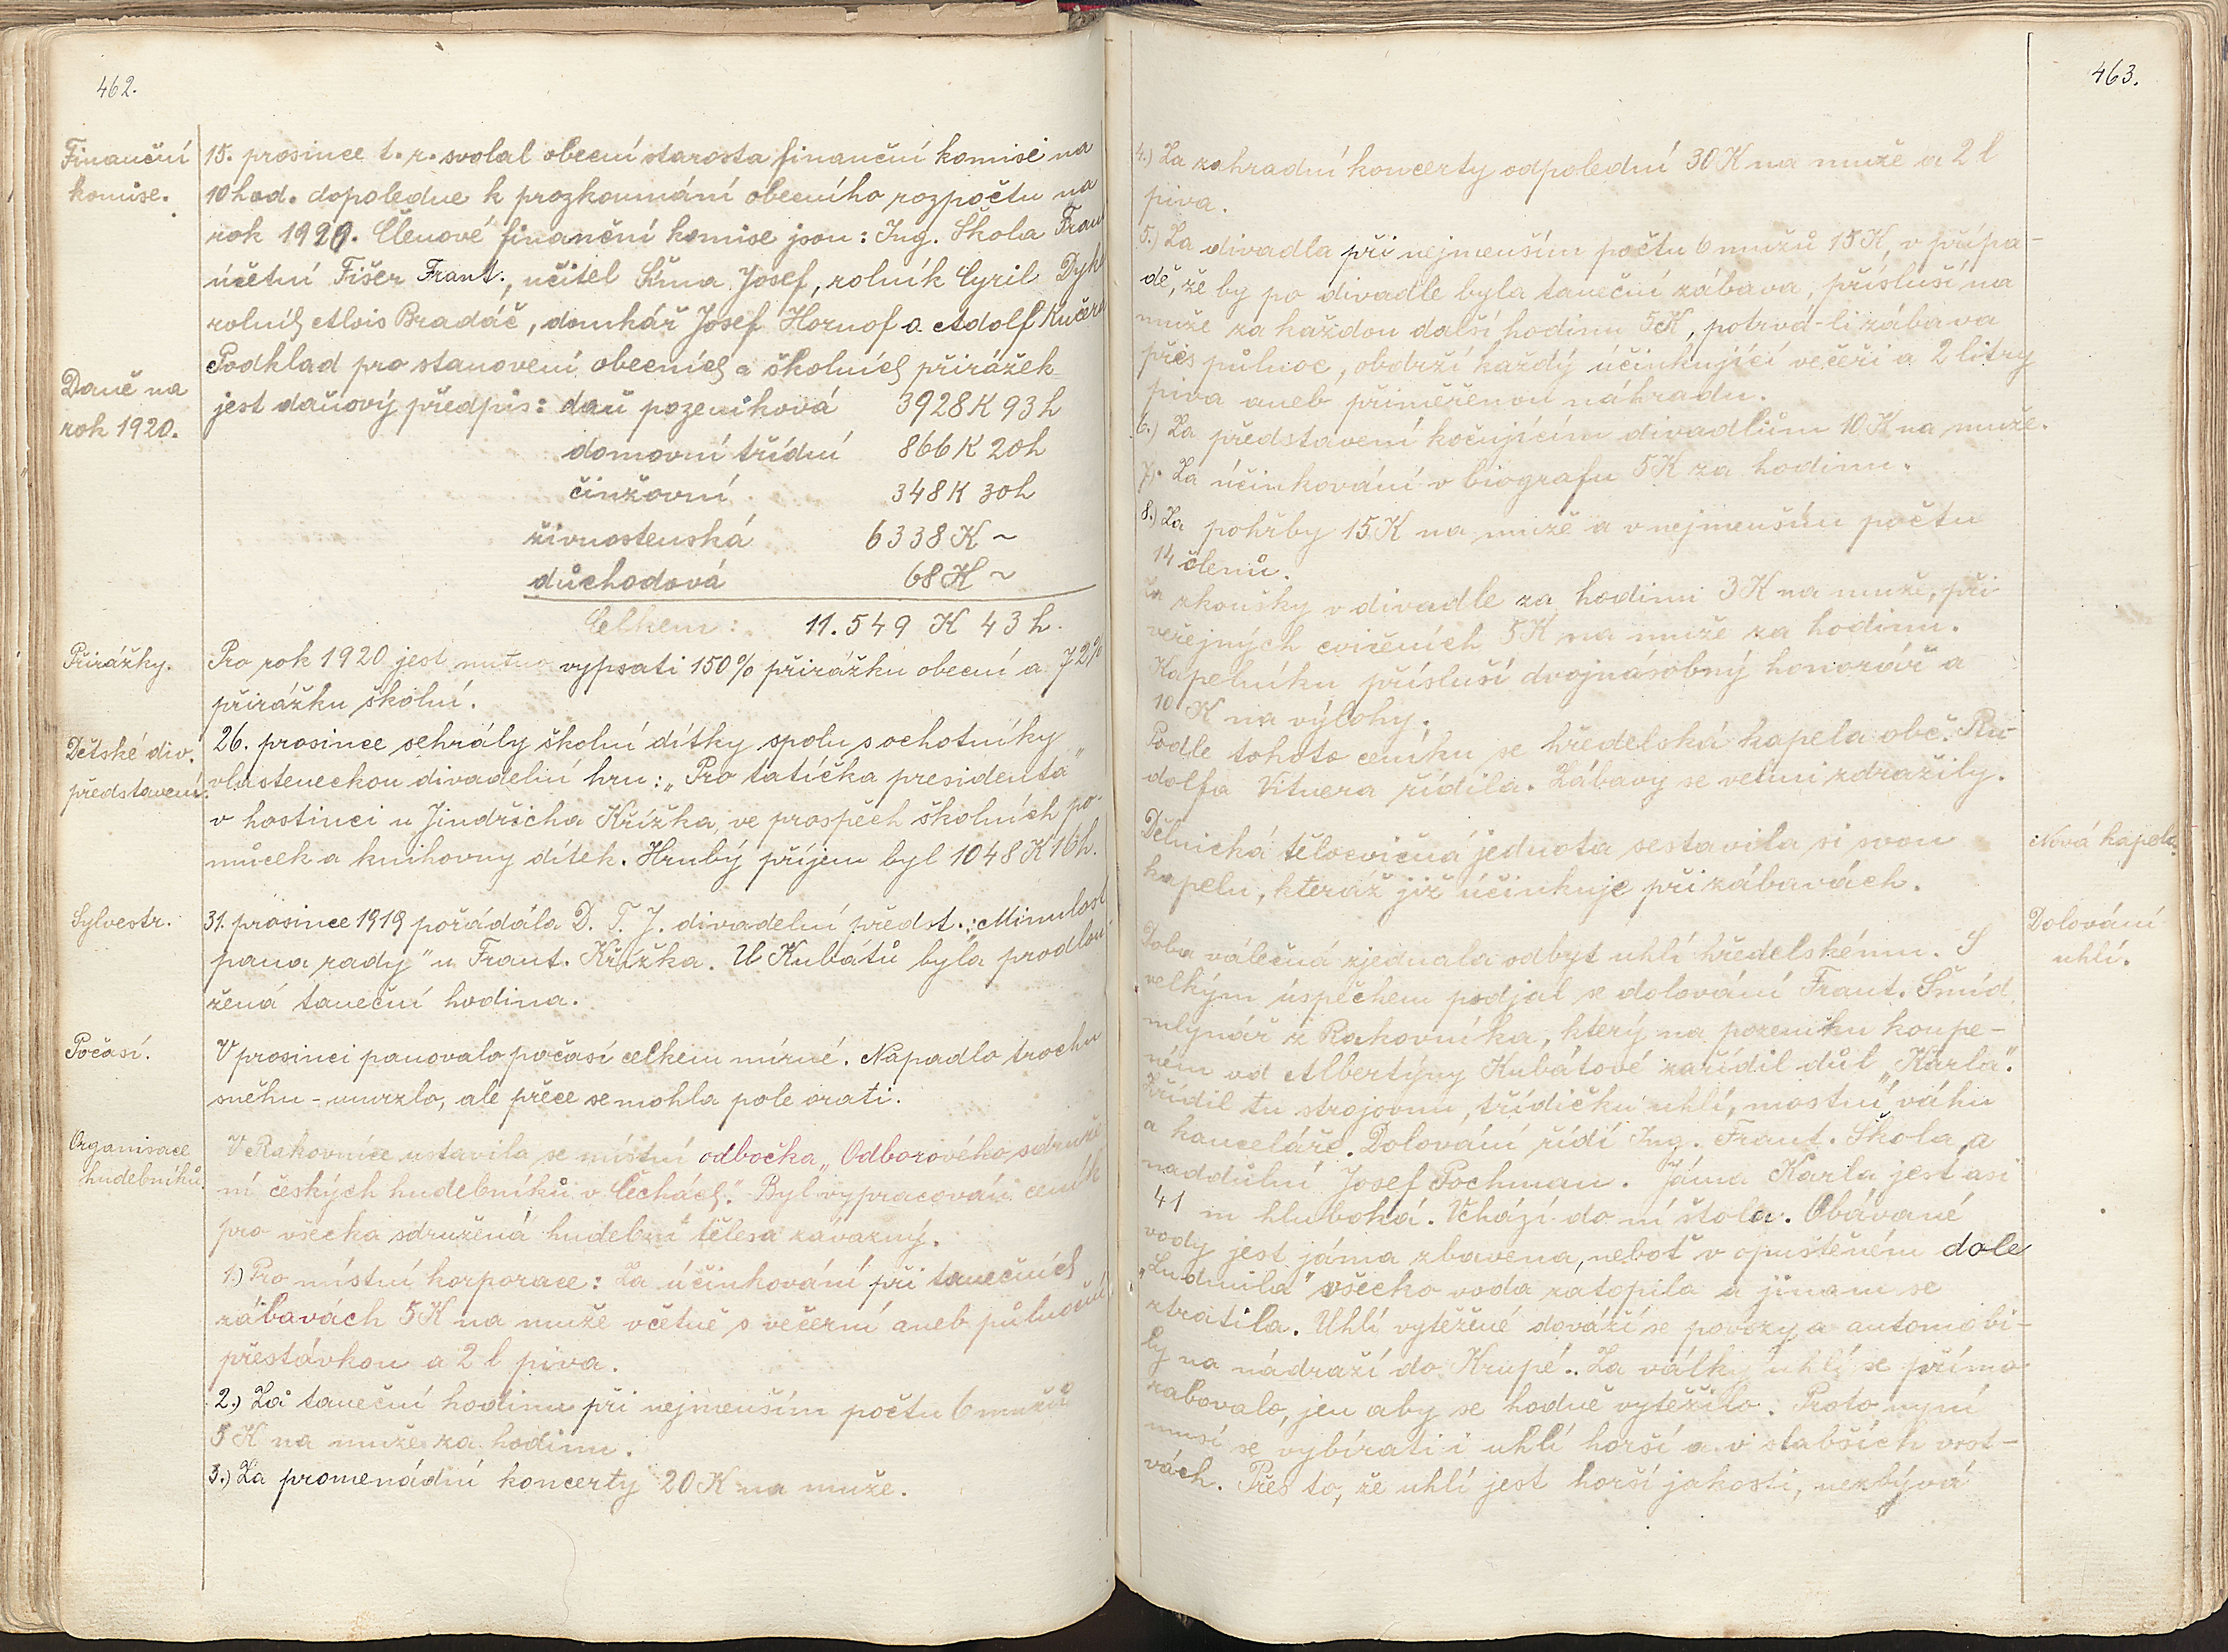 462.
Finanční
komise.
15. prosince t. r. svolal obecní starosta finanční komisi na
10 hod. dopoledne k prozkoumání obecního rozpočtu na
rok 1920. Členové finanční komise jsou: Ing. Škola Fran
účetní Fišer Frant., učitel Šíma Josef, rolník Cyril Dyk
rolník Alois Bradáč, domkář Josef Hornof a Adolf Kučera
Podklad pro stanovení obecních a školních přirážek
Daně na
rok 1920.
jest daňový předpis: daň pozemková 3928 K 93 h
domovní třídní 866 K 20 h
činžovní 348 K 30 h
živnostenská 6338 K ~
důchodová 68 K ~
Celkem: 11.549 K 43 h.
Přirážky.
Pro rok 1920 jest nutno vypsati 150% přirážku obecní a 72%
přirážku školní.
Dětské div.
představení.
26. prosince sehrály školní dítky spolu s ochotníky
vlasteneckou divadelní hru: „Pro tatíčka presidenta"
v hostinci u Jindřicha Křížka, ve prospěch školních po-
můcek a knihovny dítek. Hrubý příjem byl 1048 K 16 h.
Sylvestr.
31. prosince 1919 pořádala D. T. J. divadelní předst.: „Minulost
pana rady" u Frant. Křížka. U Kubátů byla prodlou
žená taneční hodina.
Počasí.
V prosinci panovalo počasí celkem mírné. Napadlo trochu
sněhu - umrzlo, ale přece se mohla pole orati.
Organisace
hudebníků.
V Rakovníce ustavila se místní odbočka „Odborového sdruže
ní českých hudebníků v Čechách." Byl vypracován ceník
pro všecka sdružená hudební tělesa závazný.
1.) Pro místní korporace: Za účinkování při tanečních
zábavách 5 K na muže včetně s večerní aneb půlnoční
přestávkou a 2 l piva.
2.) Za taneční hodinu při nejmenším počtu 6 mužů
5 K na muže za hodinu.
3.) Za promenádní koncerty 20 K na muže.
463.
4.) Za zahradní koncerty odpolední 30 K na muže a 2 l
piva.
5.) Za divadla při nejmenším počtu 6 mužů 15 K, v přípa-
dě, že by po divadle byla taneční zábava, přísluší na
muže za každou další hodinu 5 K, potrvá-li zábava
přes půlnoc, obdrží každý účinkující večeři a 2 litry
piva aneb přiměřenou náhradu.
6.) Za představení kočujícím divadlům 10 K na muže.
7.) Za účinkování v biografu 5 K za hodinu.
8.) Za pohřby 15 K na muže a v nejmenším počtu
14 členů.
Za zkoušky v divadle za hodinu 3 K na muže, při
veřejných cvičeních 5 K na muže za hodinu.
Kapelníku přísluší dvojnásobný honorář a
10 K na výlohy.
Podle tohoto ceníku se hředelská kapela obč. Ru-
dolfa Vitnera řídila. Zábavy se velmi zdražily.
Dělnická tělocvičná jednota sestavila si svou
kapelu, kteráž již účinkuje při zábavách.
Nová kapela.
Dolování
uhlí.
Doba válečná zjednala odbyt uhlí hředelskému. S
velkým úspěchem podjal se dolování Frant. Šmíd,
mlynář z Rakovníka, který na pozemku koupe-
ném od Albertýny Kubátové zařídil důl „Karla".
Zřídil tu strojovnu, třídičku uhlí, mostní váhu
a kanceláře. Dolování řídí Ing. Frant. Škola, a
naddůlní Josef Pochman. Jáma Karla jest asi
41 m hluboká. Vchází do ní štola. Obávané
vody jest jáma zbavena, neboť v opuštěném dole
„Ludmila" všecko voda zatopila a jinam se
ztratila. Uhlí vytěžené dováží se povozy a automobi-
ly na nádraží do Krupé. Za války uhlí se přímo
rabovalo, jen aby se hodně vytěžilo. Proto nyní
musí se vybírati i uhlí horší a v slabších vrst-
vách. Přes to, že uhlí jest horší jakosti, nezbývá